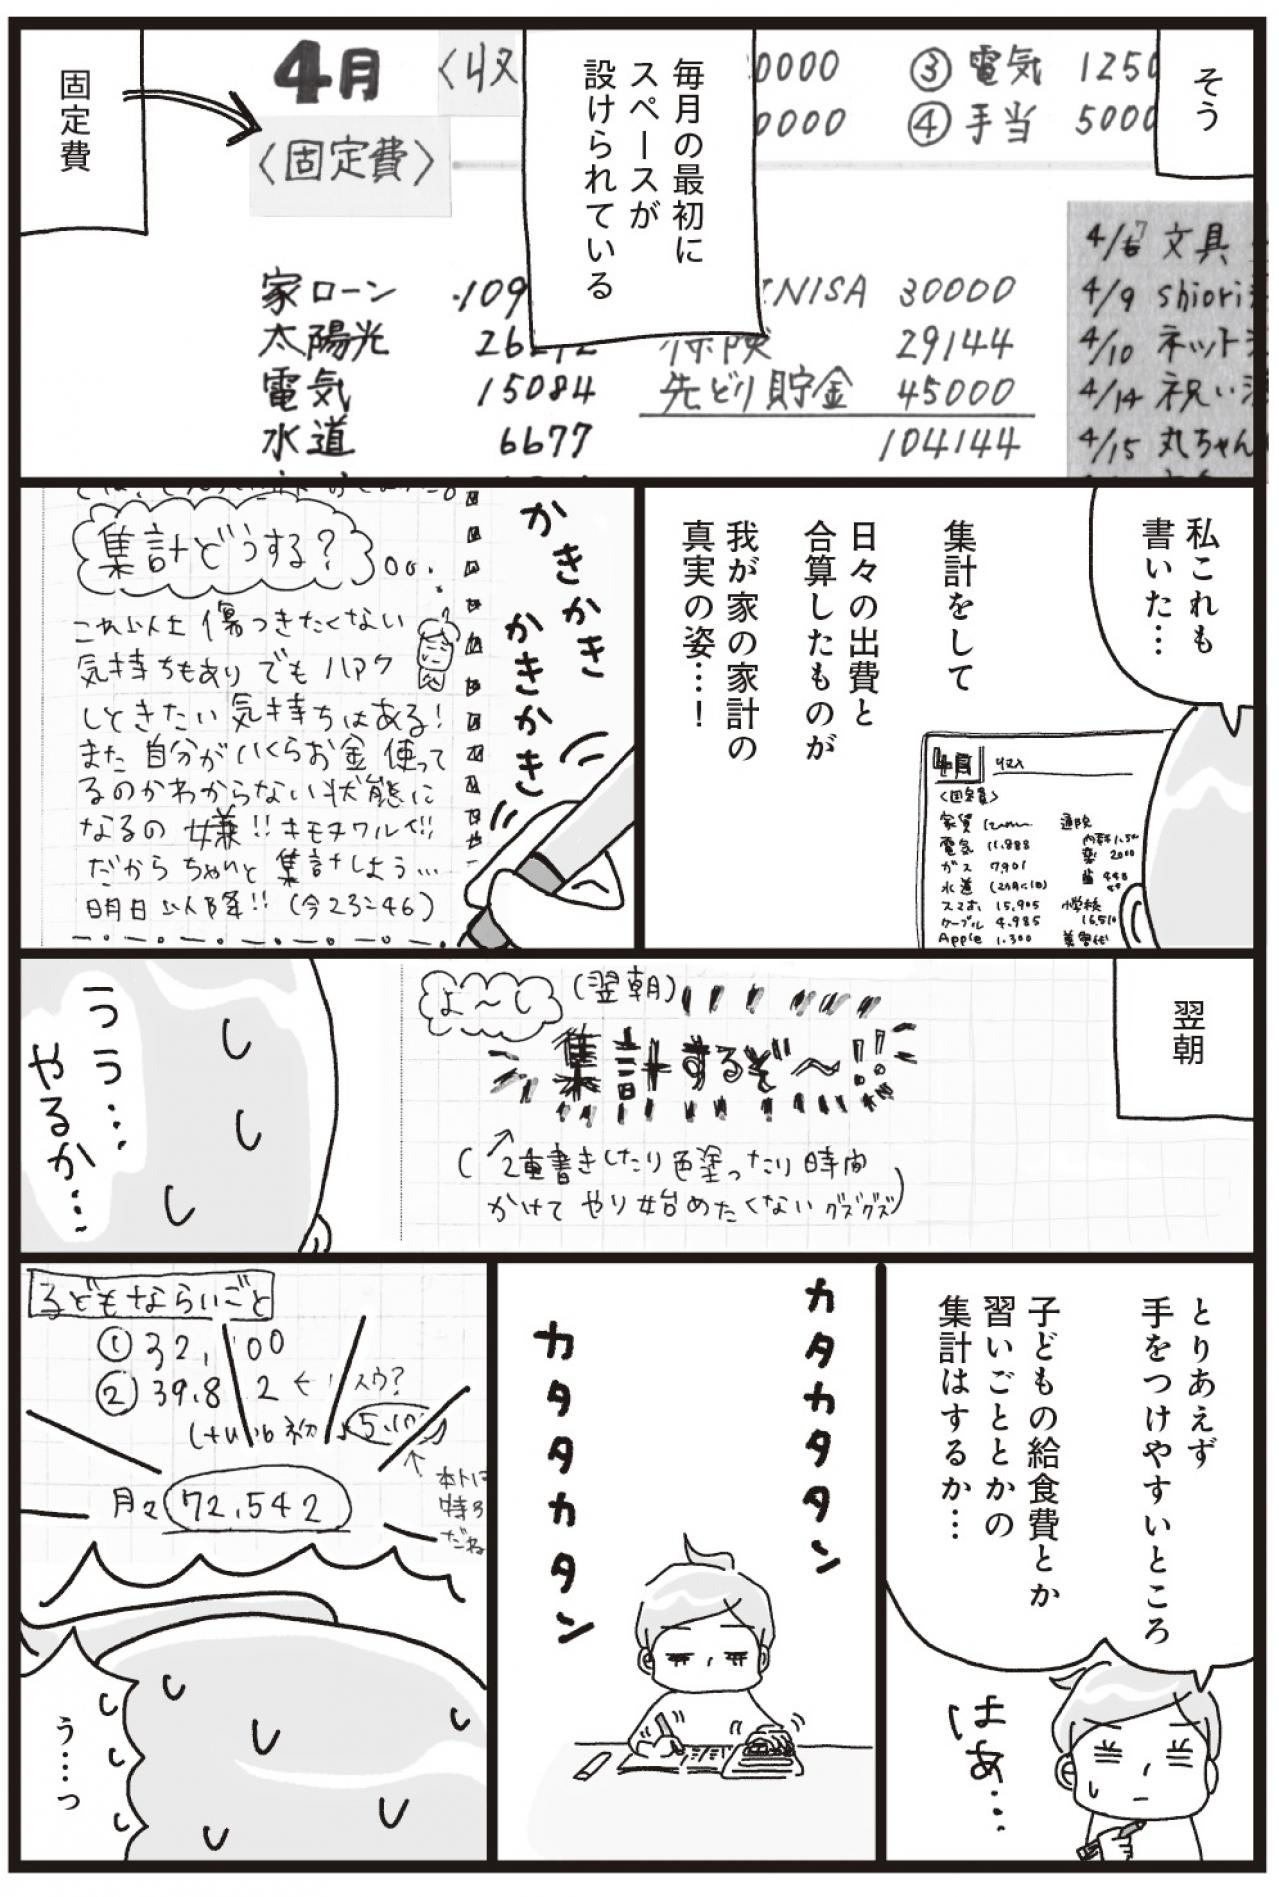 そう
毎月の最初に
スペースが
設けられている
固定費
4月
〈収
0000
③ 電気 1250
0000
④ 手当 5000
〈固定費〉
家ローン
太陽光
電気 15084
水道 6677
NISA 30000
保険 29144
先どり貯金 45000
104144
文具
4/9 shiori
4/10 ネット
4/14 祝い
4/15 丸ちゃん
私これも
書いた…
集計をして
日々の出費と
合算したものが
我が家の家計の
真実の姿…！
収入
〈固定費〉
家賃
電気 11.888
ガス 7.901
水道
スマホ 15,905
ケーブル 4.985
Apple 1.300
通院
薬 2000
小学校
16,510
かきかき
かきかき
集計どうする?
これ以上 傷つきたくない
気持ちもあり でも ハアク
しときたい 気持ちはある!
また 自分が いくらお金 使って
るのか わからない 状態に
なるの 嫌!! キモチワルイ!!
だから ちゃんと 集計しよう…
明日以降!! (今23:46)
翌朝
よ〜し
(翌朝)
集計するぞ〜!!
(↗2重書きしたり 色塗ったり 時間
かけて やり始めたくない グズグズ)
うう…
やるか…
とりあえず
手をつけやすいところ
子どもの給食費とか
習いごととかの
集計はするか…
はあ…
カタカタタン
カタタカタン
子どもならいごと
① 32, 00
② 39.8 2 ←
月々 72,542
う…っ